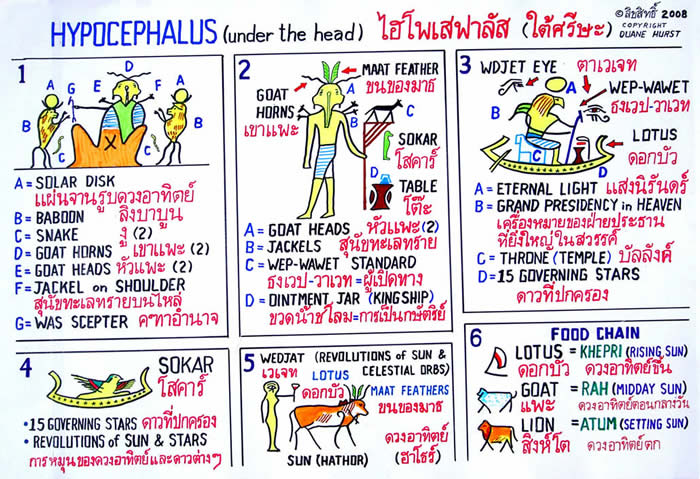 HYPOCEPHALUS (under the head) ไฮโพเสฟาลัส (ใต้ศรีษะ)
©ลิขสิทธิ์ 2008
COPYRIGHT
DUANE HURST
1
D
A G E F A
B B
C X C
A = SOLAR DISK
แผ่นจานรูปดวงอาทิตย์
B = BABOON ลิงบาบูน
C = SNAKE งู (2)
D = GOAT HORNS เขาแพะ (2)
E = GOAT HEADS หัวแพะ (2)
F = JACKEL on SHOULDER
สุนัขทะเลทรายบนไหล่
G = WAS SCEPTER คฑาอำนาจ
2
MAAT FEATHER
ขนของมาธ
GOAT
HORNS
เขาแพะ
A
B
C
SOKAR
โสคาร์
D
TABLE
โต๊ะ
A = GOAT HEADS หัวแพะ(2)
B = JACKELS สุนัขทะเลทราย
C = WEP-WAWET STANDARD
ธงเวป-วาเวท =ผู้เปิดทาง
D = OINTMENT JAR (KINGSHIP)
ขวดน้ำชโลม=การเป็นกษัตริย์
3
WDJET EYE ตาเวเจท
A
WEP-WAWET
ธงเวป-วาเวท
B
LOTUS
ดอกบัว
C
D
A = ETERNAL LIGHT แสงนิรันดร์
B = GRAND PRESIDENCY in HEAVEN
เครื่องหมายของฝ่ายประธาน
ที่ยิ่งใหญ่ในสวรรค์
C = THRONE (TEMPLE) บัลลังค์
D = 15 GOVERNING STARS
ดาวที่ปกครอง
4
SOKAR
โสคาร์
• 15 GOVERNING STARS ดาวที่ปกครอง
• REVOLUTIONS of SUN & STARS
การหมุนของดวงอาทิตย์และดาวต่างๆ
5
WEDJAT (REVOLUTIONS of SUN &
CELESTIAL ORBS)
เวเจท
LOTUS
ดอกบัว
MAAT FEATHERS
ขนของมาธ
ดวงอาทิตย์
(ฮาโธร์)
SUN (HATHOR)
6
FOOD CHAIN
LOTUS = KHEPRI (RISING SUN)
ดอกบัว ดวงอาทิตย์ขึ้น
GOAT = RAH (MIDDAY SUN)
แพะ ดวงอาทิตย์ตอนกลางวัน
LION = ATUM (SETTING SUN)
สิงห์โต ดวงอาทิตย์ตก